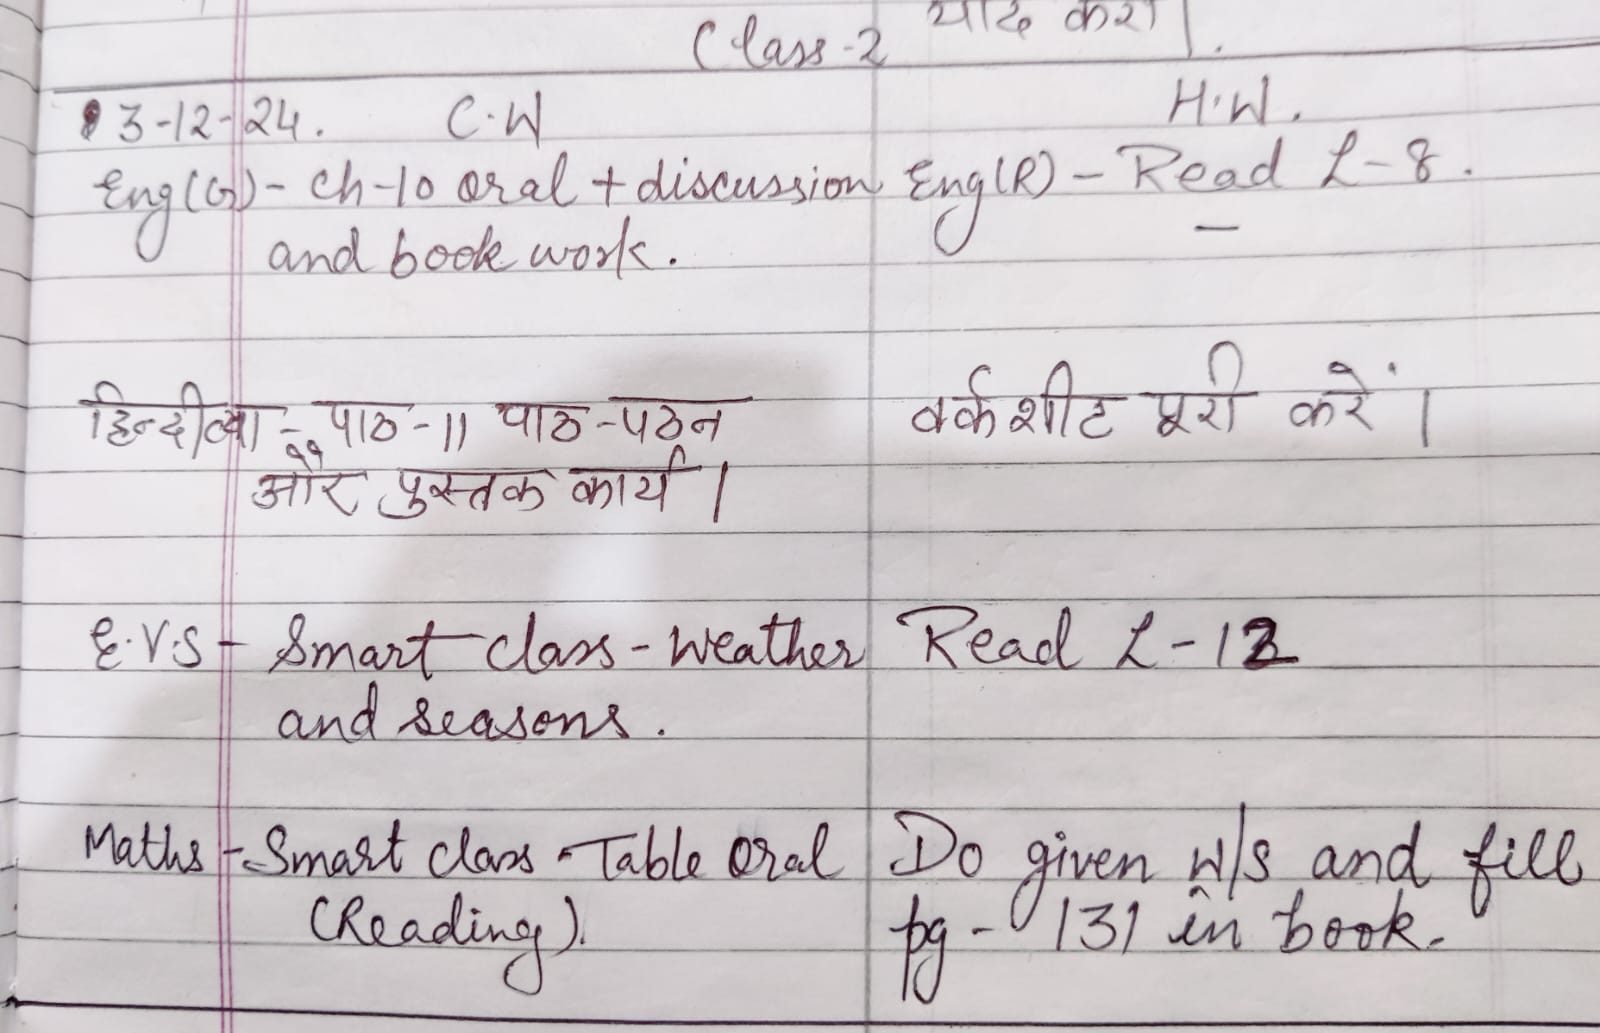 याद करो।
Class-2
3-12-24. C.W H.W.
Eng(G)- Ch-10 oral + discussion Eng(R) - Read L-8.
and book work.
हिन्दी व्या - पाठ-11 पाठ-पठन वर्कशीट पूरी करें।
और पुस्तक कार्य।
E.V.S - Smart class - Weather Read L-12
and seasons.
Maths - Smart class - Table Oral Do given w/s and fill
(Reading). pg - 131 in book.